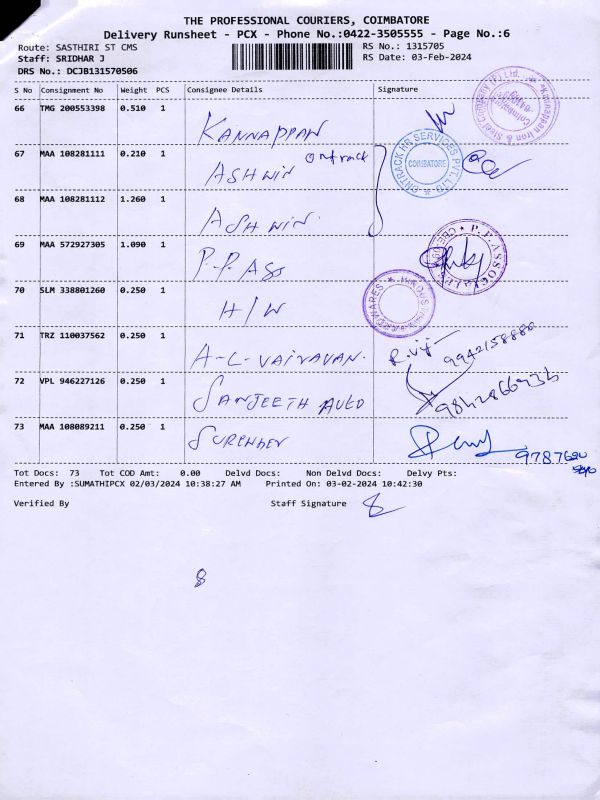 THE PROFESSIONAL COURIERS, COIMBATORE
Delivery Runsheet - PCX - Phone No.:0422-3505555 - Page No.:6
Route: SASTHIRI ST CMS RS No.: 1315705
Staff: SRIDHAR J RS Date: 03-Feb-2024
DRS No.: DCJB131570506
S No Consignment No Weight PCS Consignee Details Signature
66 TMG 200553398 0.510 1 KANNAPPAN
67 MAA 108281111 0.210 1 ASHWIN Ontrack
ONTRACK HR SERVICES PVT. LTD COIMBATORE
68 MAA 108281112 1.260 1 ASHWIN.
69 MAA 572927305 1.090 1 P.P. ASS
P.P. ASSOCIATES
70 SLM 338801260 0.250 1 H/W
HARDWARES
71 TRZ 110037562 0.250 1 A-L-VAIRAVAN. R. Viji 9942158880
72 VPL 946227126 0.250 1 SANJEETH
73 MAA 108089211 0.250 1 SURENDER
Tot Docs: 73 Tot COD Amt: 0.00 Delvd Docs: Non Delvd Docs: Delvy Pts:
Entered By :SUMATHIPCX 02/03/2024 10:38:27 AM Printed On: 03-02-2024 10:42:30
Verified By Staff Signature
8